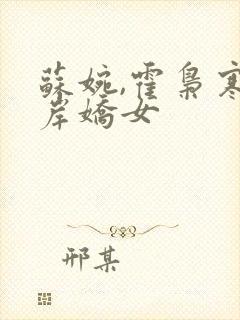 蘇婉,霍梟寒
岸嬌女
邢某